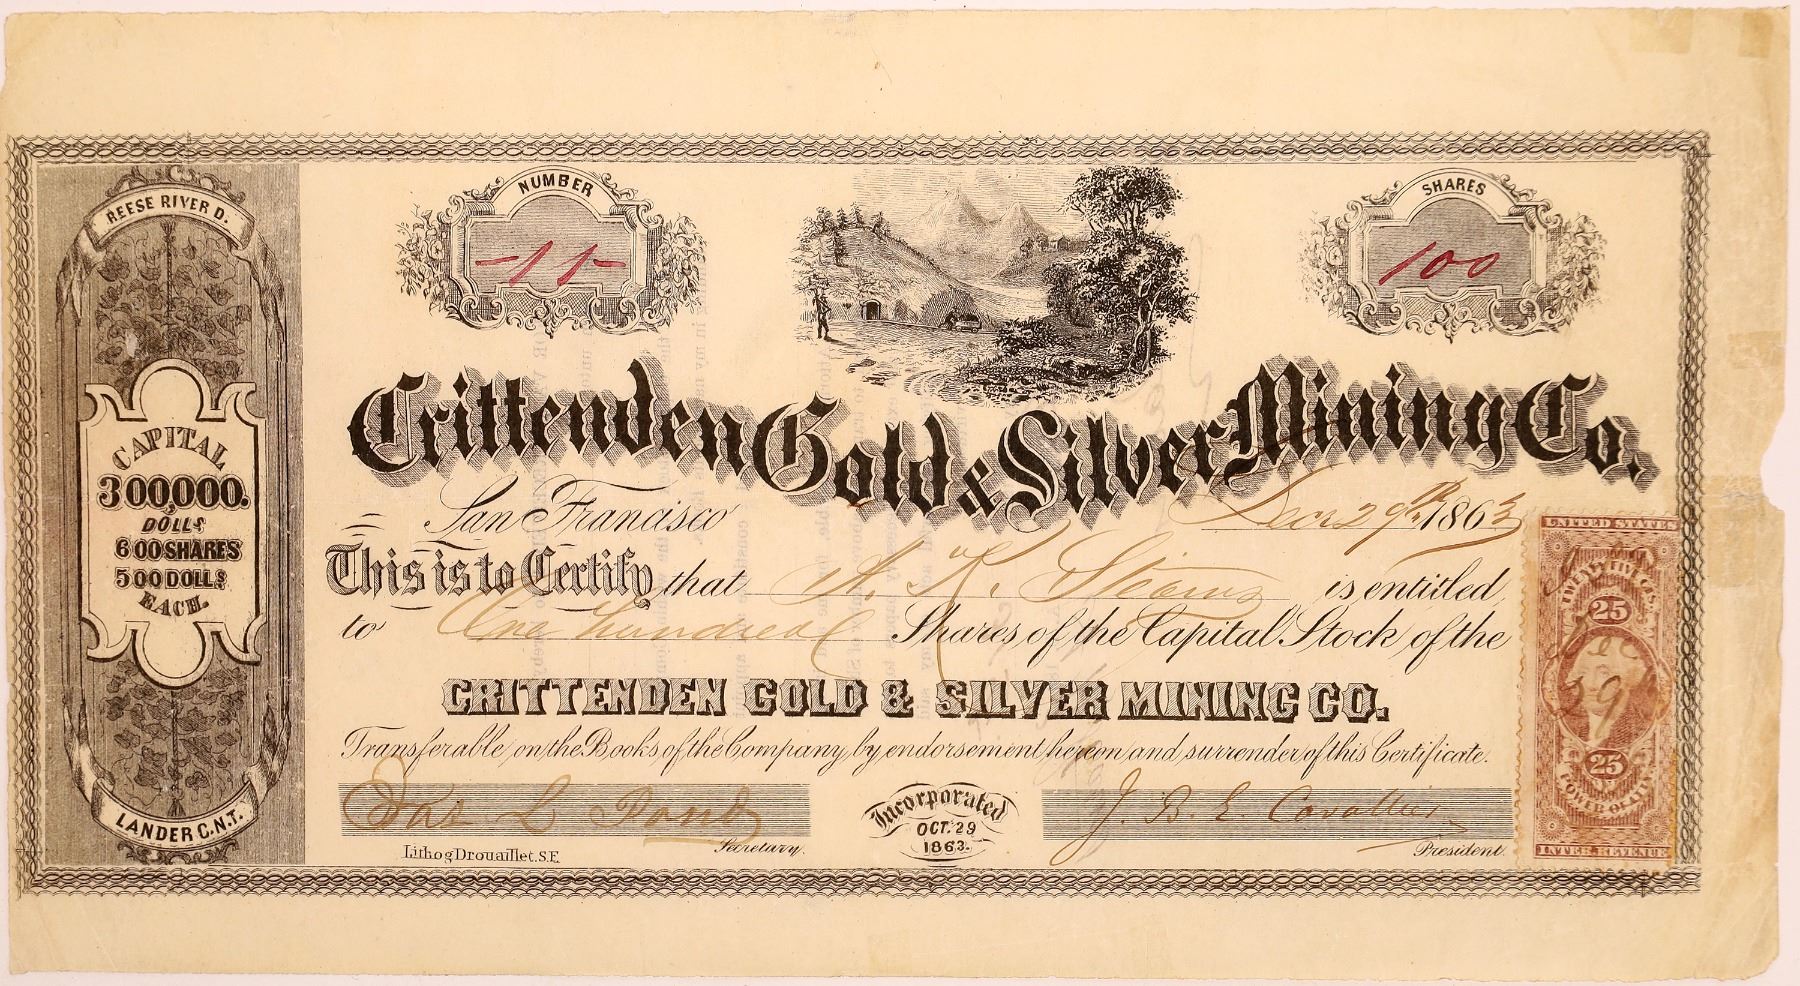 NUMBER
-11-
SHARES
100
REESE RIVER D.
CAPITAL
300,000.
DOLLS
600 SHARES
500 DOLLS
EACH.
LANDER C.N.T.
Crittenden Gold & Silver Mining Co.
San Francisco Decr 29th 1863
This is to Certify that A. K. Stearns is entitled
to One hundred Shares of the Capital Stock of the
CRITTENDEN GOLD & SILVER MINING CO.
Transferable on the Books of the Company, by endorsement hereon and surrender of this Certificate.
Jas L Pond
Secretary.
Incorporated
OCT. 29
1863.
J. B. E. Cavallier
President.
Lithog Drouaillet. S.F.
UNITED STATES
TWENTY FIVE CTS.
25
Dec
29
25
POWER OF ATT'Y
INTER. REVENUE